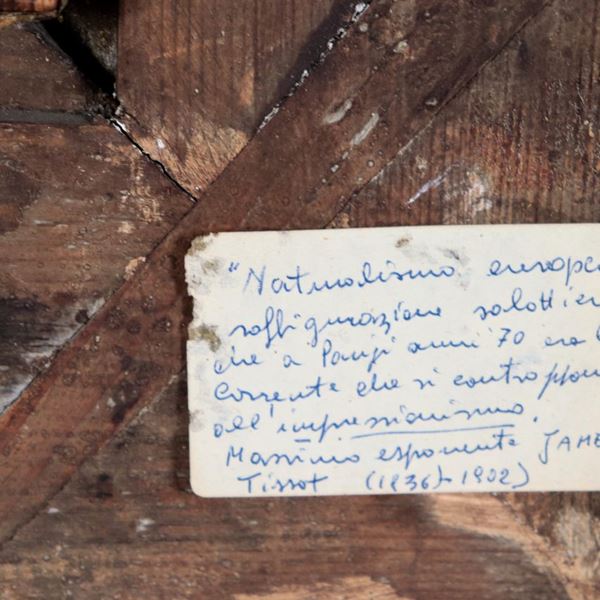 "Naturalismo europe
raffigurazione salottier
che a Parigi anni '70 era
corrente che si contrappon
all'impressionismo.
Massimo esponente JAME
Tissot (1836-1902)